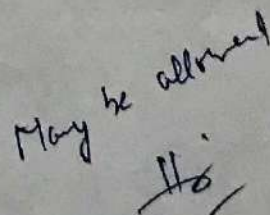 May be allowed